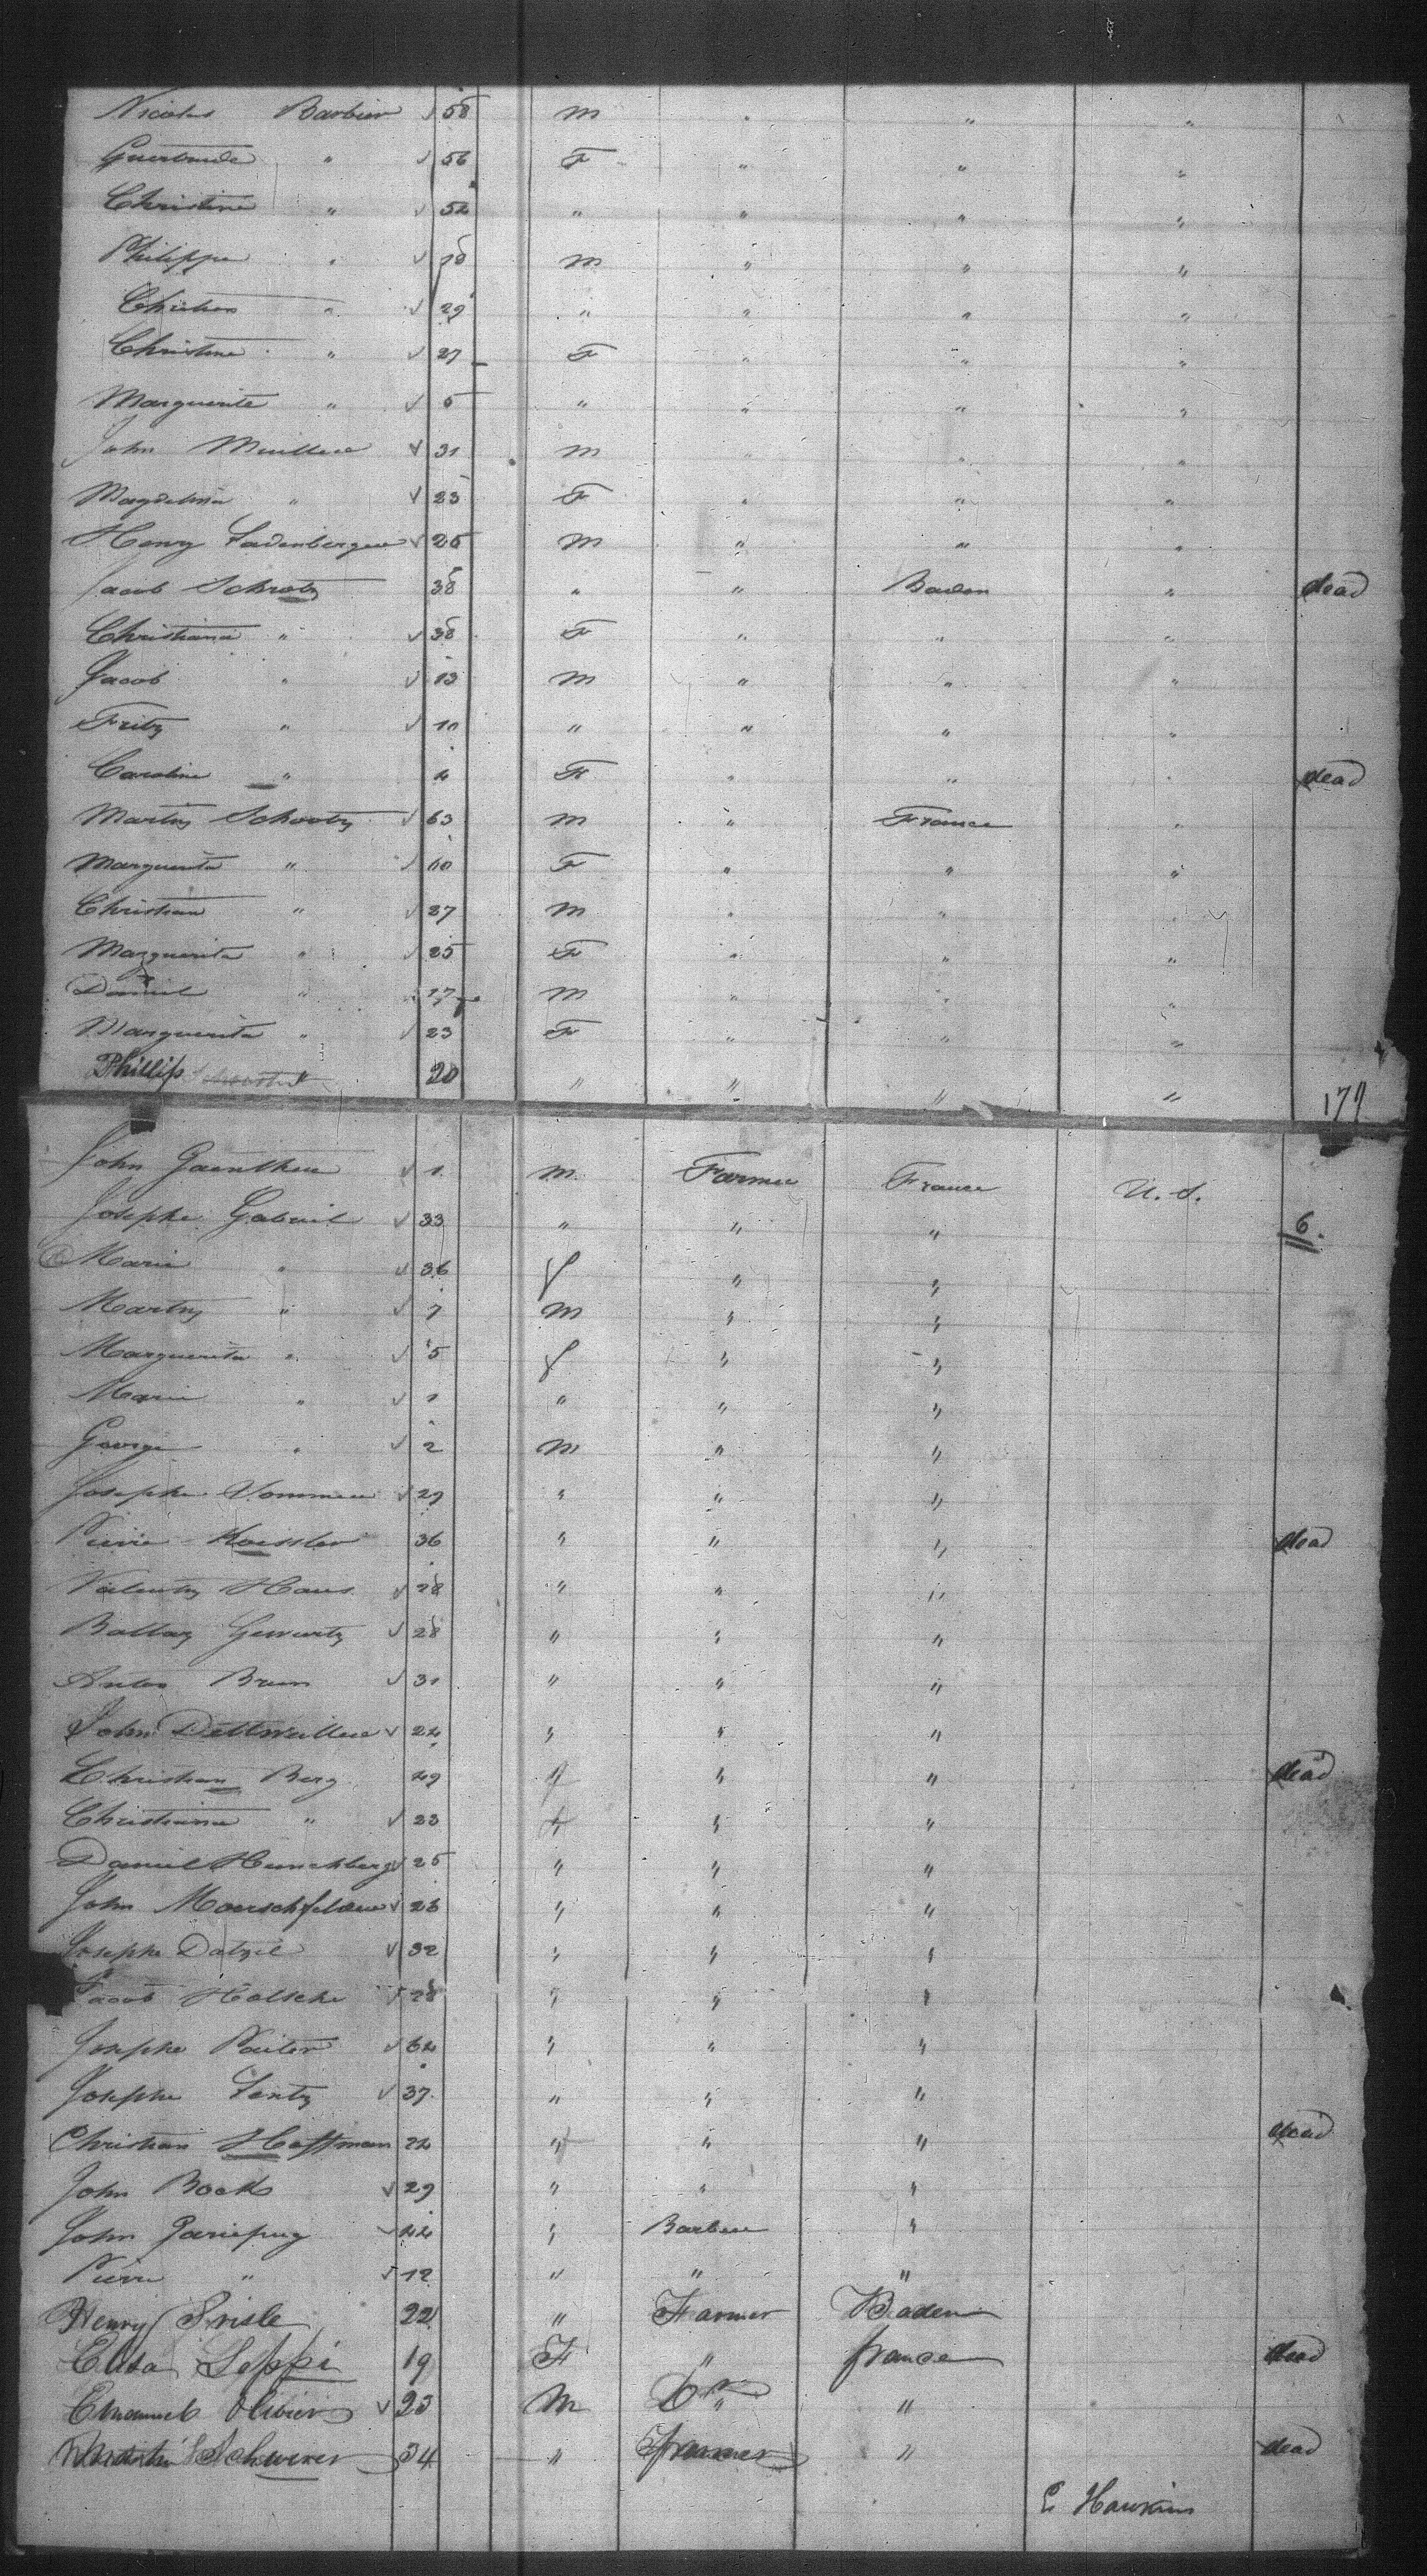 Nicolas Barbier √ 58 m " " "
Guertrude " √ 56 F " " "
Christine " √ 52 " " " "
Philippe " √ 28 m " " "
" √ 29 " " " "
Christine " √ 27 F " " "
Marguerite " √ 5 " " " "
John Muller √ 31 m " " "
Magdelina " √ 25 F " " "
Henry Ladenberger √ 25 m " " "
Jacob Schrotz 38 " " Baden " dead
Christiana " √ 38 F " " "
Jacob " √ 13 m " " "
Fritz " √ 10 " " " "
Caroline " 4 F " " " dead
Martin Schrotz √ 63 m " France "
Marguerita " √ 60 F " " "
Christian " √ 27 m " " "
Marguerita " √ 25 F " " "
Daniel " 17 m " " "
Marguerita " √ 23 F " " "
Phillip " 20 " " " "
179
John √ 1 m Farmer France U. S.
Josephe Gabriel √ 33 " " " 6.
Marie " √ 36 f " "
Martin " √ 7 m " "
Marguerita " √ 5 f " "
Marie " √ 1 " " "
George " √ 2 m " "
Josephe √ 29 " " "
Pierre Koessler 36 " " " dead
Valentin Haus √ 28 " " "
Baltaz Gewertz √ 28 " " "
Anton Brun √ 31 " " "
John Dettweiller √ 24 " " "
Christian Berg 29 " " " dead
Christiana " √ 23 " "
Daniel Hunchberg √ 25 " " "
John Moerschfelder √ 26 " " "
Josephe Datzil √ 32 " " "
Jacob Holsche √ 28 " " "
Josephe √ 32 " " "
Josephe Lentz √ 37 " " "
Christian Hoffman 22 " " " dead
John Bock √ 29 " " "
John √ 42 " Barber "
Pierre " √ 12 " " "
Henry 22 " Farmer Baden
Elisa Seppi 19 F " france dead
Emanuel Olivier √ 25 m Do "
Schwerer 34 " farmer " dead
E Hawkins